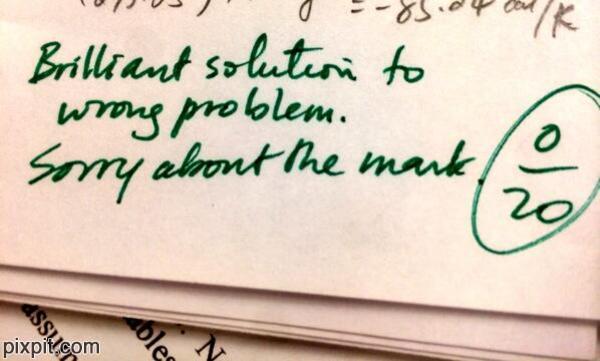 = -85.04 cal/K
Brilliant solution to
wrong problem.
Sorry about the mark.
0
20
N
assu
ables
pixpit.com